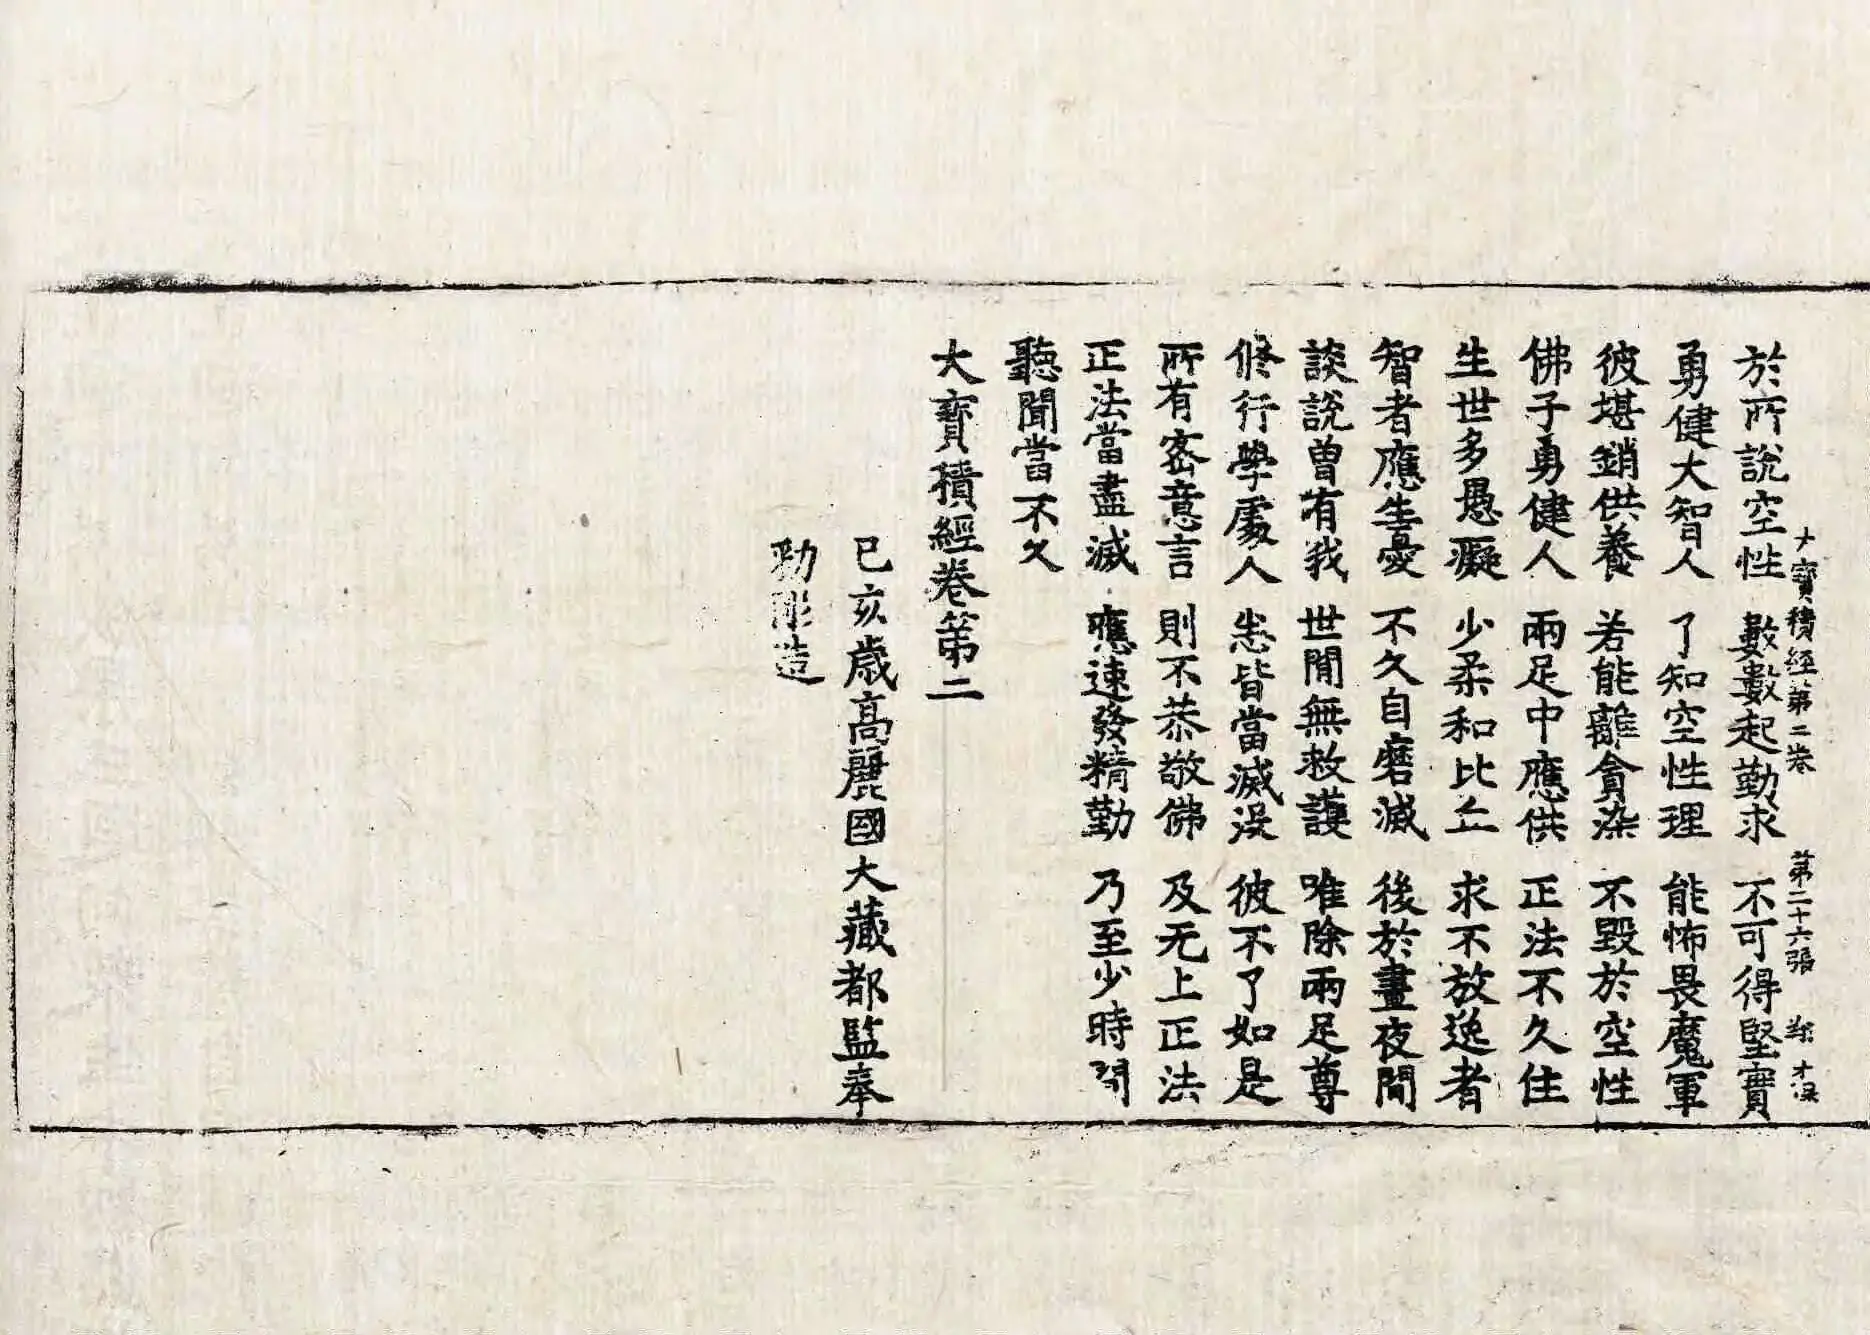 大寶積經第二卷 第二十六張 才浞
於所說空性 數數起勤求 不可得堅實
勇健大智人 了知空性理 能怖畏魔軍
彼堪銷供養 若能離貪染 不毀於空性
佛子勇健人 兩足中應供 正法不久住
生世多愚癡 少柔和比丘 求不放逸者
智者應生憂 不久自磨滅 後於晝夜閒
談說曾有我 世閒無救護 唯除兩足尊
修行學處人 悉皆當滅沒 彼不了如是
所有密意言 則不恭敬佛 及无上正法
正法當盡滅 應速發精勤 乃至少時閒
聽聞當不久
大寶積經卷第二
己亥歲高麗國大藏都監奉
勅彫造